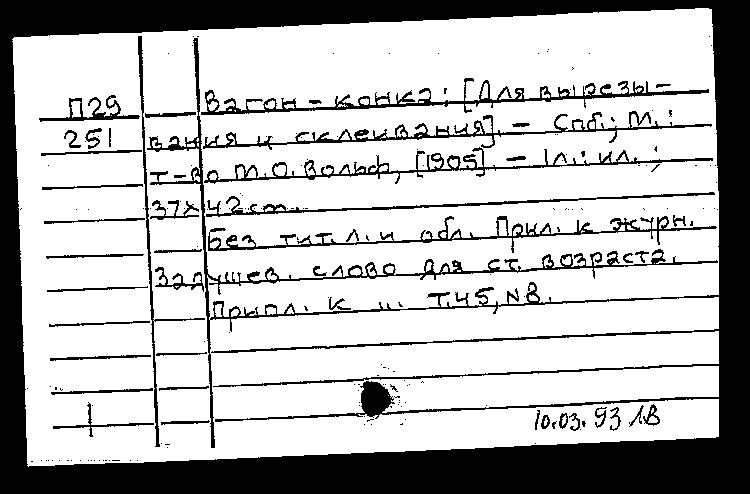 П29 Вагон-конка: [Для вырезы-
251 вания и склеивания]. – Спб.; М.:
т-во М.О. Вольф, [1905]. – 1л.: ил.;
37×42 cm.
Без тит. л. и обл. Прил. к журн.
Задушев. слово для ст. возраста.
Припл. к ... Т.45, N8.
10.03.93